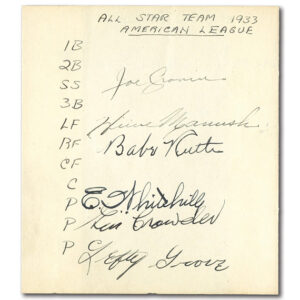 ALL STAR TEAM 1933
AMERICAN LEAGUE
1B
2B
SS Joe Cronin
3B
LF Heinie Manush
RF Babe Ruth
CF
C
P E. Whitehill
P Crowder
P Lefty Grove